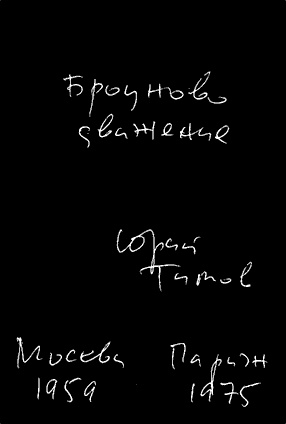 Броуново
движение
Юрий
Титов
Москва Париж
1959 1975